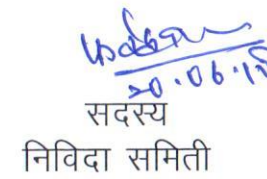 20.06.15
सदस्य
निविदा समिती